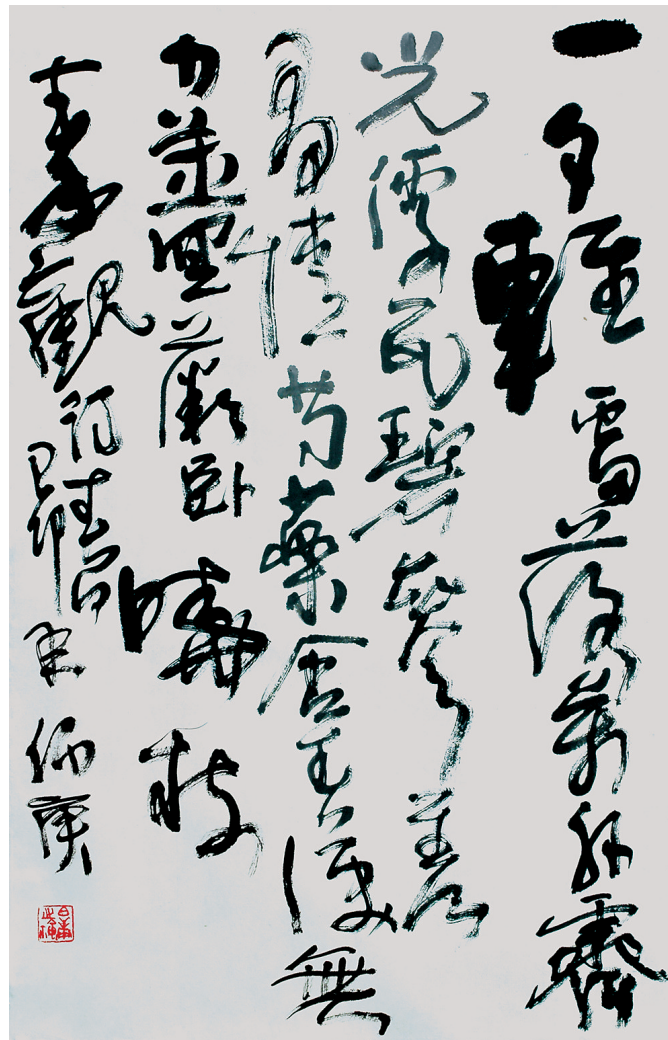 一夕輕雷落萬絲霽
光浮瓦碧參差
有情芍藥含春淚無
力薔薇卧曉枝
秦觀詩春日